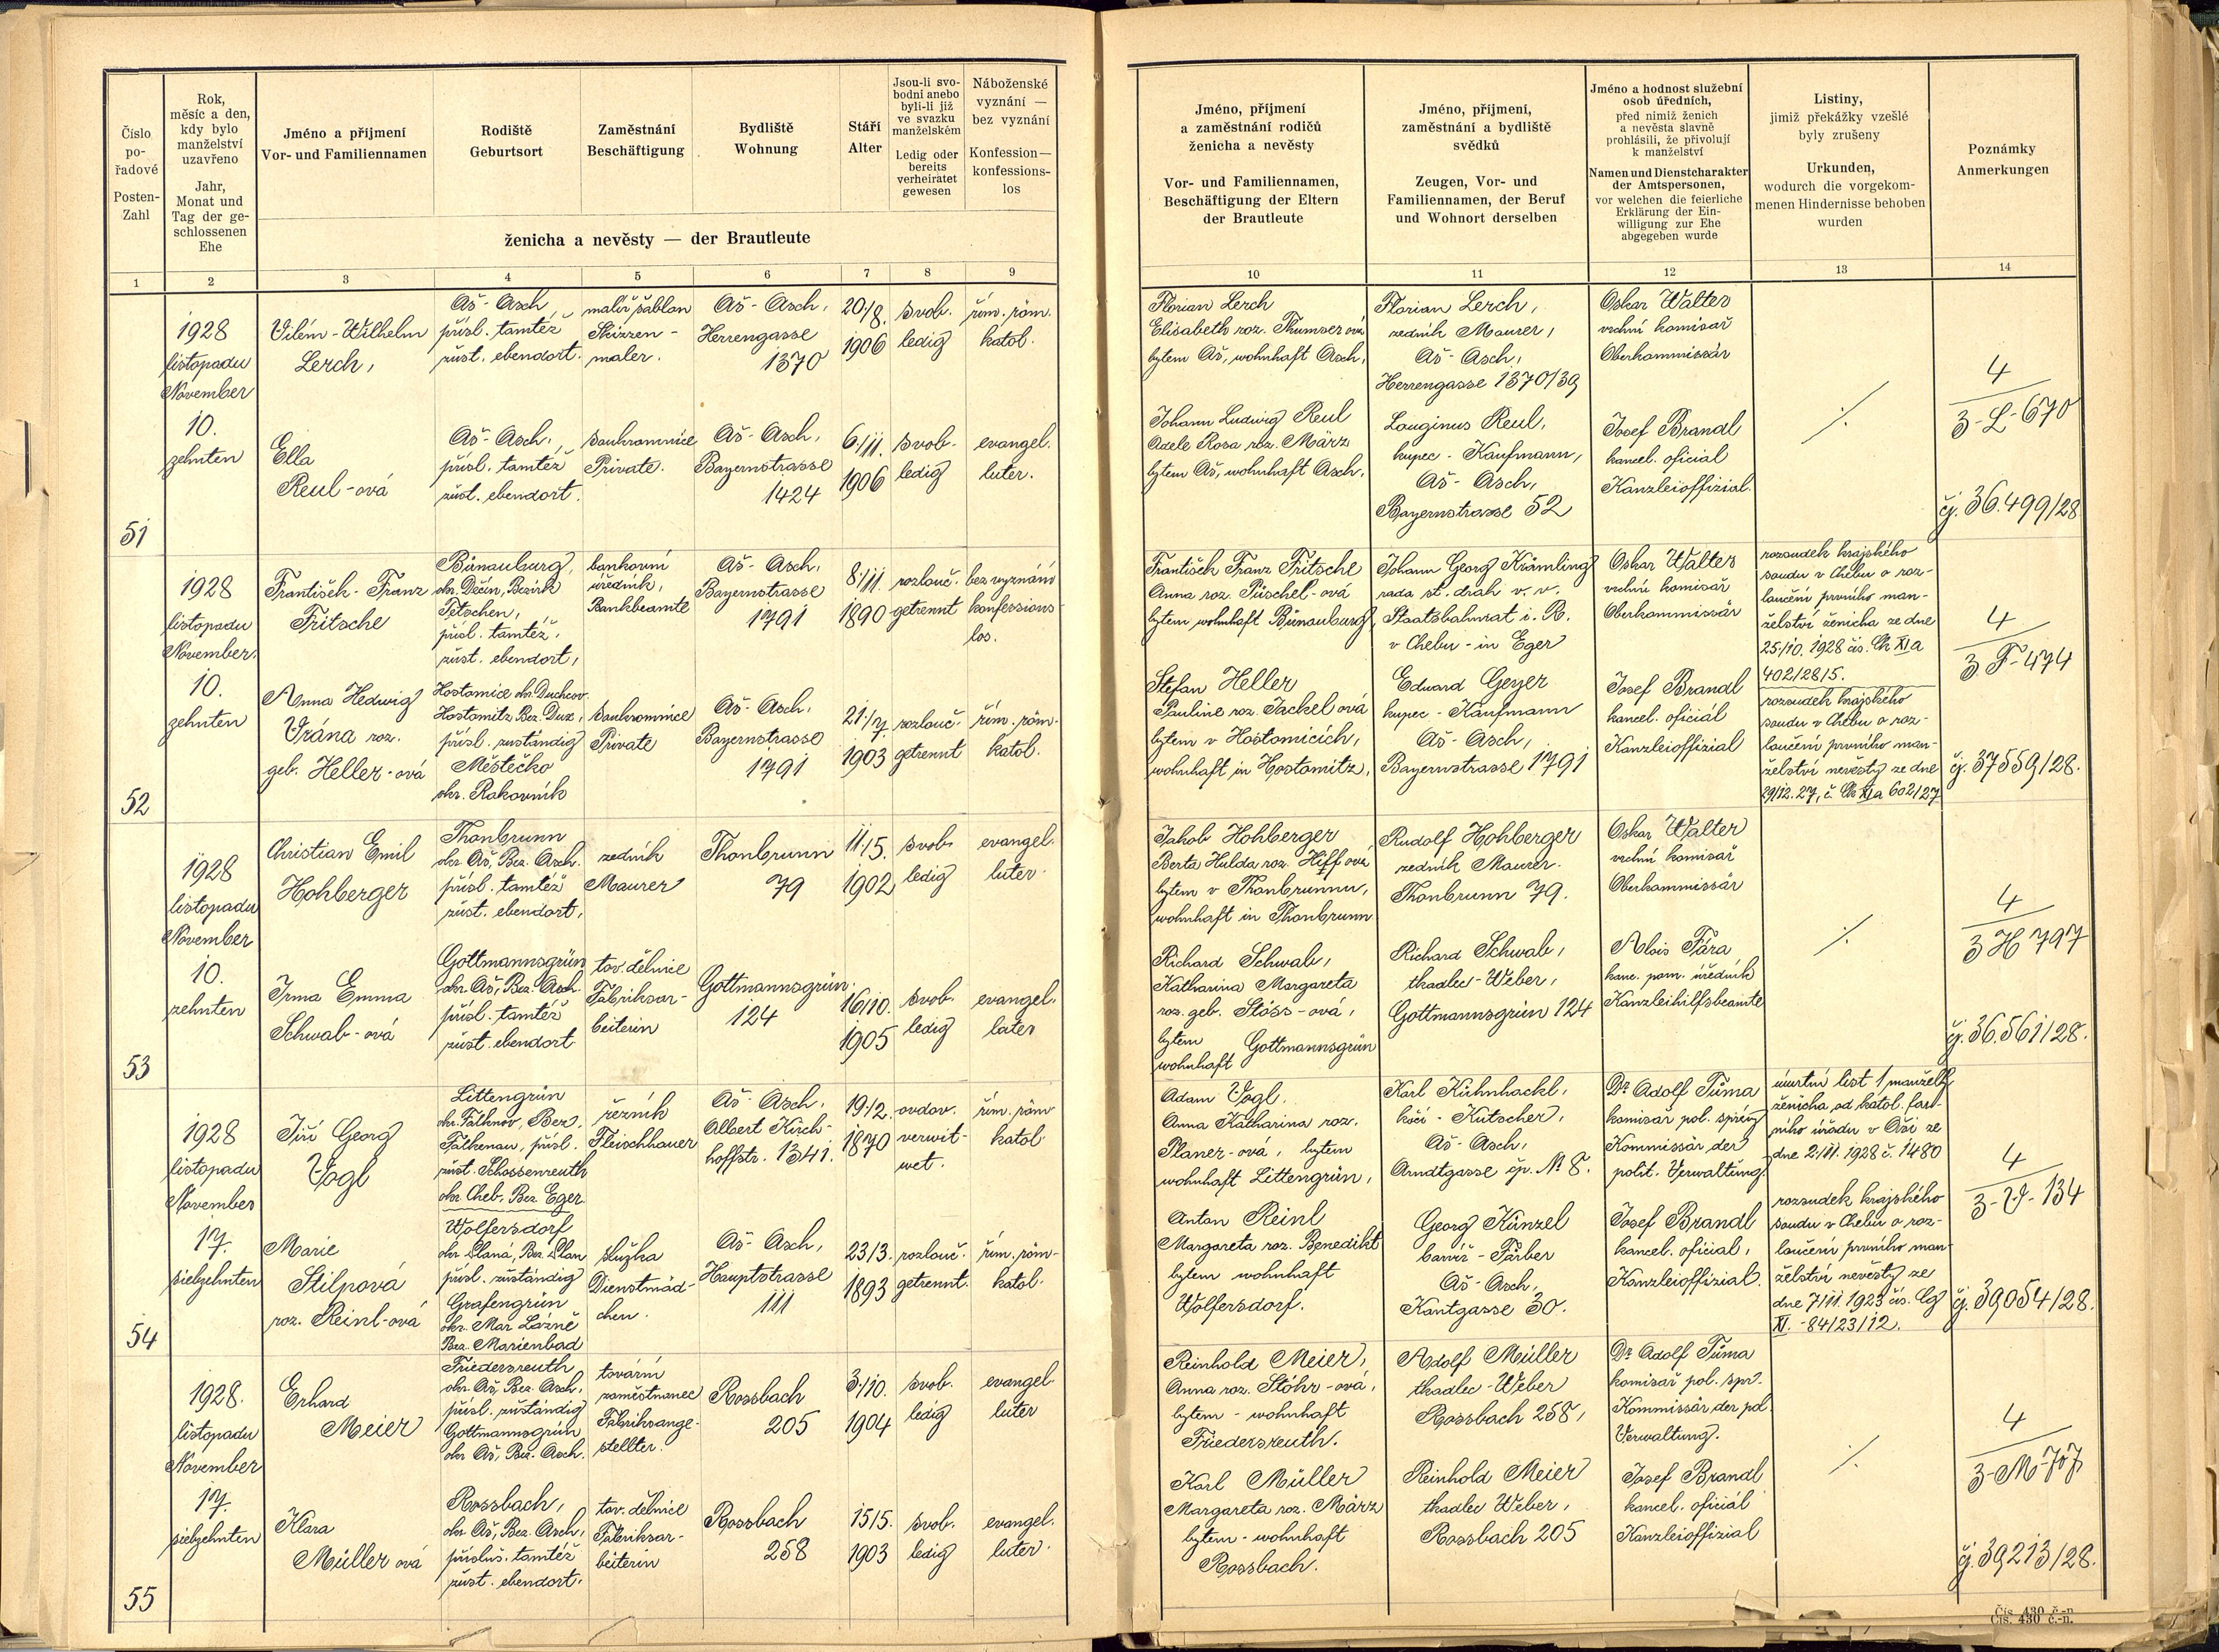 Číslo
po-
řadové
Posten-
Zahl
Rok,
měsíc a den,
kdy bylo
manželství
uzavřeno
Jahr,
Monat und
Tag der ge-
schlossenen
Ehe
Jméno a příjmení
Vor- und Familiennamen
Rodiště
Geburtsort
Zaměstnání
Beschäftigung
Bydliště
Wohnung
Stáří
Alter
Jsou-li svo-
bodni anebo
byli-li již
ve svazku
manželském
Ledig oder
bereits
verheiratet
gewesen
Náboženské
vyznání —
bez vyznání
Konfession—
konfessions-
los
ženicha a nevěsty — der Brautleute
1 2 3 4 5 6 7 8 9
51
1928
listopadu
November
10.
zehnten
Vilém - Wilhelm
Lerch,
Aš - Asch
přísl. tamtéž
zust. ebendort.
malíř šablon
Skizzen-
maler.
Aš - Asch,
Herrengasse
1370
20/8.
1906
svob.
ledig
řím. röm.
katol.
Ella
Reul-ová
Aš - Asch,
přísl. tamtéž
zust. ebendort.
soukromnice
Private.
Aš - Asch,
Bayernstrasse
1424
6./11.
1906
svob.
ledig
evangel.
luter.
52
1928
listopadu
November.
10.
zehnten
František - Franz
Fritsche
Bünauburg,
okr. Děčín, Bezirk
Tetschen,
přísl. tamtéž,
zust. ebendort,
bankovní
úředník,
Bankbeamte
Aš - Asch,
Bayernstrasse
1791
8./11.
1890
rozlouč.
getrennt
bez vyznání
konfessions-
los.
Anna Hedwig
Vrána roz.
geb. Heller-ová
Hostomice okr. Duchcov
Hostomitz Bez. Dux,
přísl. zuständig
Městečko
okr. Rakovník
soukromnice
Private
Aš - Asch,
Bayernstrasse
1791
21./7.
1903
rozlouč.
getrennt
řím. röm.
katol.
53
1928
listopadu
November
10.
zehnten
Christian Emil
Hohberger
Thonbrunn
okr. Aš, Bez. Asch.
přísl. tamtéž
zust. ebendort,
zedník
Maurer
Thonbrunn
79
11./5.
1902
svob.
ledig
evangel.
luter.
Irma Emma
Schwab-ová
Gottmannsgrün
okr. Aš, Bez. Asch.
přísl. tamtéž
zust. ebendort
tov. dělnice
Fabriksar-
beiterin
Gottmannsgrün
124
16/10.
1905
svob.
ledig
evangel.
luter
54
1928
listopadu
November
17.
siebzehnten
Jiří Georg
Vogl
Littengrün
okr. Falknov, Bez.
Falkenau, přísl.
zust. Schossenreuth
okr. Cheb, Bez. Eger.
řezník
Fleischhauer
Aš - Asch,
Albert Kirch-
hoffstr. 1341.
19/2.
1870
ovdov.
verwit-
wet.
řím. röm
katol.
Marie
Stilpová
roz. Reinl-ová
Wolfersdorf
okr. Planá, Bez. Plan
přísl. zuständig
Grafengrün
okr. Mar. Lázně
Bez. Marienbad
služka
Dienstmäd-
chen.
Aš - Asch,
Hauptstrasse
111
23/3.
1893
rozlouč.
getrennt.
řím. röm-
katol.
55
1928.
listopadu
November
17.
siebzehnten
Erhard
Meier
Friedersreuth
okr. Aš, Bez. Asch,
přísl. zuständig
Gottmannsgrün
okr. Aš, Bez. Asch.
tovární
zaměstnanec
Fabriksange-
stellter.
Rossbach
205
3./10.
1904
svob.
ledig
evangel.
luter
Klara
Müller ová
Rossbach,
okr. Aš, Bez. Asch,
přísluš. tamtéž
zust. ebendort.
tov. dělnice
Fabriksar-
beiterin
Rossbach
258
15/5.
1903
svob.
ledig
evangel.
luter.
Jméno, příjmení
a zaměstnání rodičů
ženicha a nevěsty
Vor- und Familiennamen,
Beschäftigung der Eltern
der Brautleute
Jméno, příjmení,
zaměstnání a bydliště
svědků
Zeugen, Vor- und
Familiennamen, der Beruf
und Wohnort derselben
Jméno a hodnost služební
osob úředních,
před nimiž ženich
a nevěsta slavně
prohlásili, že přivolují
k manželství
Namen und Dienstcharakter
der Amtspersonen,
vor welchen die feierliche
Erklärung der Ein-
willigung zur Ehe
abgegeben wurde
Listiny,
jimiž překážky vzešlé
byly zrušeny
Urkunden,
wodurch die vorgekom-
menen Hindernisse behoben
wurden
Poznámky
Anmerkungen
10 11 12 13 14
Florian Lerch
Elisabeth roz. Thumser ová
bytem Aš, wohnhaft Asch,
Florian Lerch,
zedník Maurer,
Aš - Asch,
Herrengasse 1370/39
Oskar Walter
vrchní komisař
Oberkommissär
Johann Ludwig Reul
Adele Rosa roz. März
bytem Aš, wohnhaft Asch,
Longinus Reul,
kupec - Kaufmann,
Aš - Asch,
Bayernstrasse 52
Josef Brandl
kancel. oficial
Kanzleioffizial.
./.
4
3-L-670
čj. 36.499/28
František Franz Fritsche
Anna roz. Püschel-ová
bytem wohnhaft Bünauburg
Johann Georg Krömling
rada st. drah v. v.
Staatsbahnrat i. R.
v Chebu - in Eger
Oskar Walter
vrchní komisař
Oberkommissär
rozsudek krajského
soudu v Chebu o roz-
loučení prvního man-
želství ženicha ze dne
25/10. 1928 čís. Ck XI a
402/28/5.
Stefan Heller
Pauline roz. Jackel ová
bytem v Hostomicích,
wohnhaft in Hostomitz,
Eduard Geyer
kupec - Kaufmann
Aš - Asch,
Bayernstrasse 1791
Josef Brandl
kancel. oficiál
Kanzleioffizial
rozsudek krajského
soudu v Chebu o roz-
loučení prvního man-
želství nevěsty ze dne
29/12. 27, č. Ck XI a 602/27
4
3. F-474
čj. 37559/28.
Jakob Hohberger
Berta Hulda roz. Hiff ová
bytem v Thonbrunnu,
wohnhaft in Thonbrunn
Rudolf Hohberger
zedník Maurer.
Thonbrunn 79.
Oskar Walter
vrchní komisař
Oberkommissär
Richard Schwab,
Katharina Margareta
roz. geb. Stöss-ová,
bytem
Gottmannsgrün
wohnhaft
Richard Schwab,
tkadlec - Weber,
Gottmannsgrün 124
Alois Fára
kanc. pom. úředník
Kanzleihilfsbeamte
./.
4
3 H 797
čj. 36.561/28.
Adam Vogl.
Anna Katharina roz.
Planer-ová, bytem
wohnhaft Littengrün,
Karl Kühnhackl,
kočí - Kutscher,
Aš - Asch,
Arndtgasse čp. № 8.
Dr Adolf Tůma
komisař pol. správy
Kommissär der
polit. Verwaltung.
úmrtní list 1 manželky
ženicha od katol. far-
ního úřadu v Aši ze
dne 2./11. 1928 č. 1480
Anton Reinl
Margareta roz. Benedikt
bytem wohnhaft
Wolfersdorf.
Georg Künzel
barvíř - Färber
Aš - Asch,
Kantgasse 30.
Josef Brandl
kancel. oficial,
Kanzleioffizial.
rozsudek krajského
soudu v Chebu o roz-
loučení prvního man-
želství nevěsty ze
dne 7/11. 1923 čís. Cg
XI. - 84/23/12.
4
3-V-134
čj. 39054/28.
Reinhold Meier,
Anna roz. Stöhr-ová,
bytem - wohnhaft
Friedersreuth.
Adolf Müller
tkadlec - Weber
Rossbach 258,
Dr Adolf Tůma
komisař pol. spr.
Kommissär der pol.
Verwaltung.
Karl Müller
Margareta roz. März
bytem - wohnhaft
Rossbach.
Reinhold Meier
tkadlec Weber,
Rossbach 205
Josef Brandl
kancel. oficiál
Kanzleioffizial
./.
4
3-M-707
čj. 39213/28.
Čís. 430 č.-n.